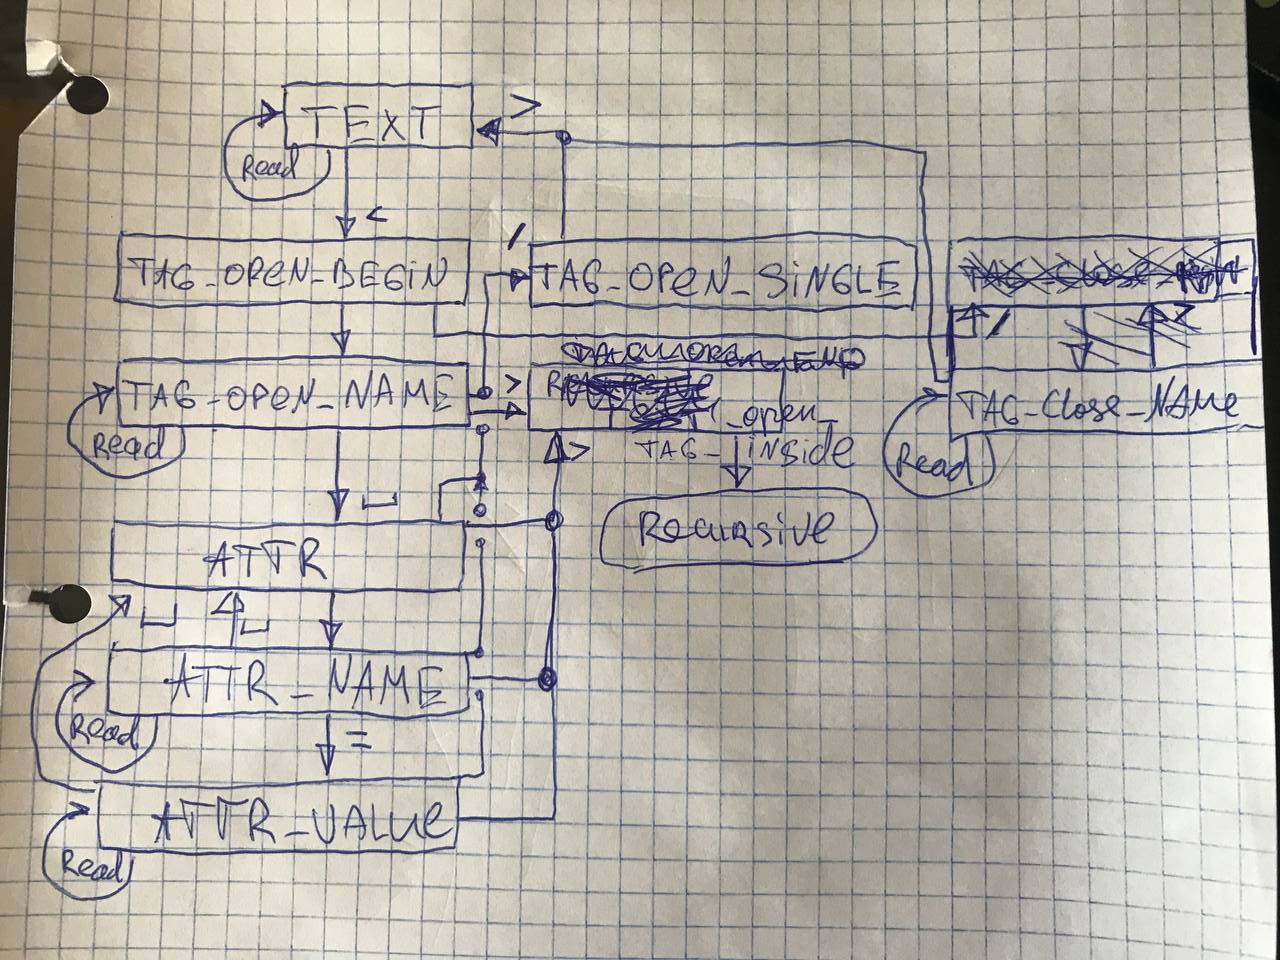 TEXT
>
Read
<
TAG_OPEN_BEGIN
/
TAG_OPEN_SINGLE
/
TAG_OPEN_NAME
>
Read
_open_
TAG_inside
>
TAG_Close_NAMe
Read
Recursive
ATTR
ATTR_NAME
Read
=
ATTR_VALUe
Read